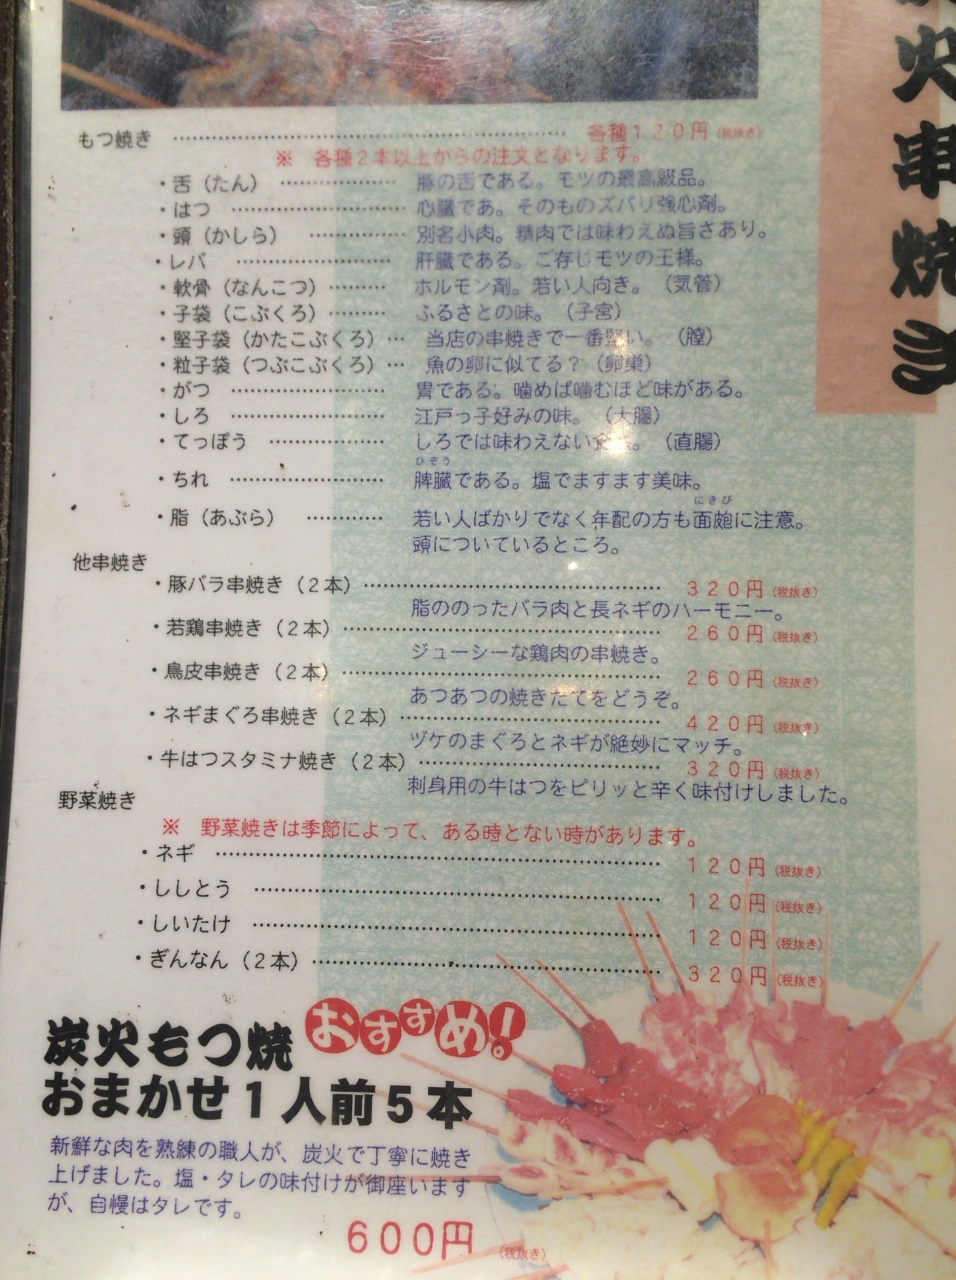 火串焼き
もつ焼き ……………… 各種１２０円(税抜き)
※ 各種２本以上からの注文となります。
・舌（たん） ………… 豚の舌である。モツの最高級品。
・はつ ………… 心臓であ。そのものズバリ強心剤。
・頭（かしら） ………… 別名小肉。精肉では味わえぬ旨さあり。
・レバ ………… 肝臓である。ご存じモツの王様。
・軟骨（なんこつ）……… ホルモン剤。若い人向き。（気管）
・子袋（こぶくろ）……… ふるさとの味。（子宮）
・堅子袋（かたこぶくろ）… 当店の串焼きで一番堅い。（膣）
・粒子袋（つぶこぶくろ）… 魚の卵に似てる？（卵巣）
・がつ ………… 胃である。噛めば噛むほど味がある。
・しろ ………… 江戸っ子好みの味。（大腸）
・てっぽう ………… しろでは味わえない。（直腸）
ひぞう
・ちれ ………… 脾臓である。塩でますます美味。
にきび
・脂（あぶら） ……… 若い人ばかりでなく年配の方も面皰に注意。
頭についているところ。
他串焼き
・豚バラ串焼き（２本）……………… ３２０円(税抜き)
脂ののったバラ肉と長ネギのハーモニー。
・若鶏串焼き（２本）……………… ２６０円(税抜き)
ジューシーな鶏肉の串焼き。
・鳥皮串焼き（２本）……………… ２６０円(税抜き)
あつあつの焼きたてをどうぞ。
・ネギまぐろ串焼き（２本）……………… ４２０円(税抜き)
ヅケのまぐろとネギが絶妙にマッチ。
・牛はつスタミナ焼き（２本）……………… ３２０円(税抜き)
刺身用の牛はつをピリッと辛く味付けしました。
野菜焼き
※ 野菜焼きは季節によって、ある時とない時があります。
・ネギ ……………… １２０円(税抜き)
・ししとう ……………… １２０円(税抜き)
・しいたけ ……………… １２０円(税抜き)
・ぎんなん（２本）……………… ３２０円(税抜き)
炭火もつ焼 おすすめ！
おまかせ１人前５本
新鮮な肉を熟練の職人が、炭火で丁寧に焼き
上げました。塩・タレの味付けが御座います
が、自慢はタレです。
６００円 (税抜き)